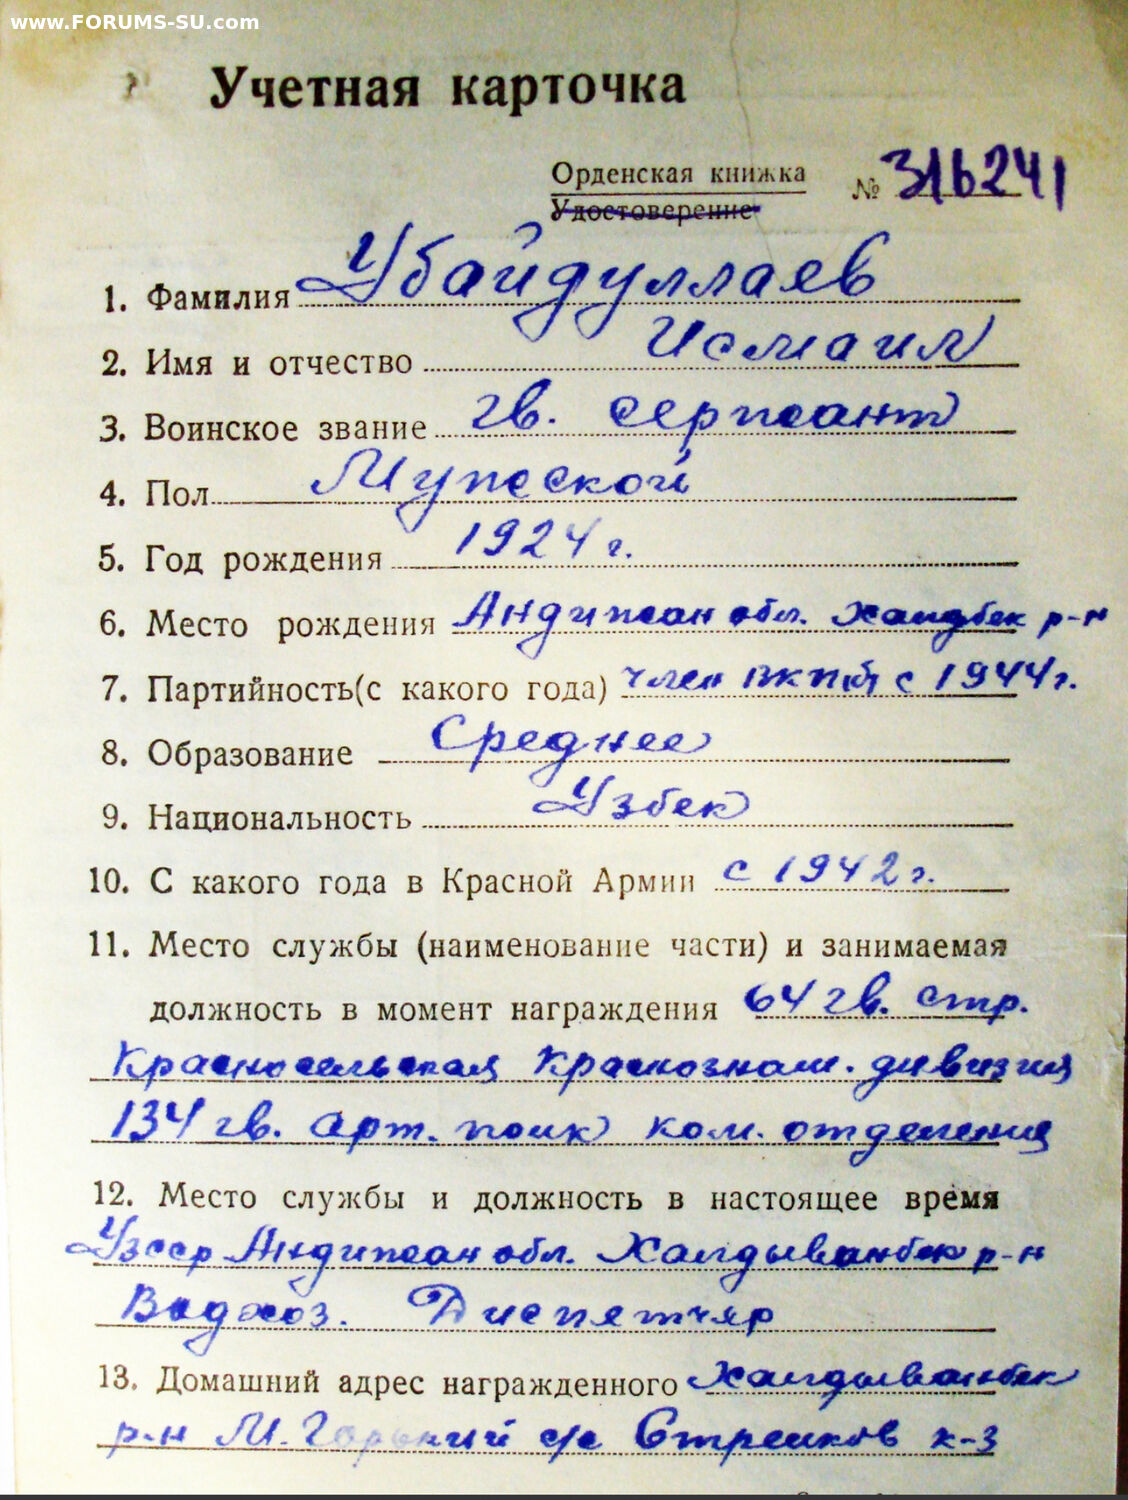 www.FORUMS-SU.com
Учетная карточка
Орденская книжка
Удостоверение
№ 316241
1. Фамилия Убайдуллаев
2. Имя и отчество Исмаил
3. Воинское звание гв. сержант
4. Пол Мужской
5. Год рождения 1924 г.
6. Место рождения Андижан обл. Халдбек р-н
7. Партийность(с какого года) член ВКП(б) с 1944г.
8. Образование Среднее
9. Национальность Узбек
10. С какого года в Красной Армии с 1942 г.
11. Место службы (наименование части) и занимаемая
должность в момент награждения 64 гв. стр.
Красносельская Краснознам. дивизия
134 гв. арт. полк ком. отделения
12. Место службы и должность в настоящее время
Узсср Андижан обл. Халдыванбек р-н
Водхоз. Диспетчяр
13. Домашний адрес награжденного Халдыванбек
р-н М. Горький с/с Стрелков к-з